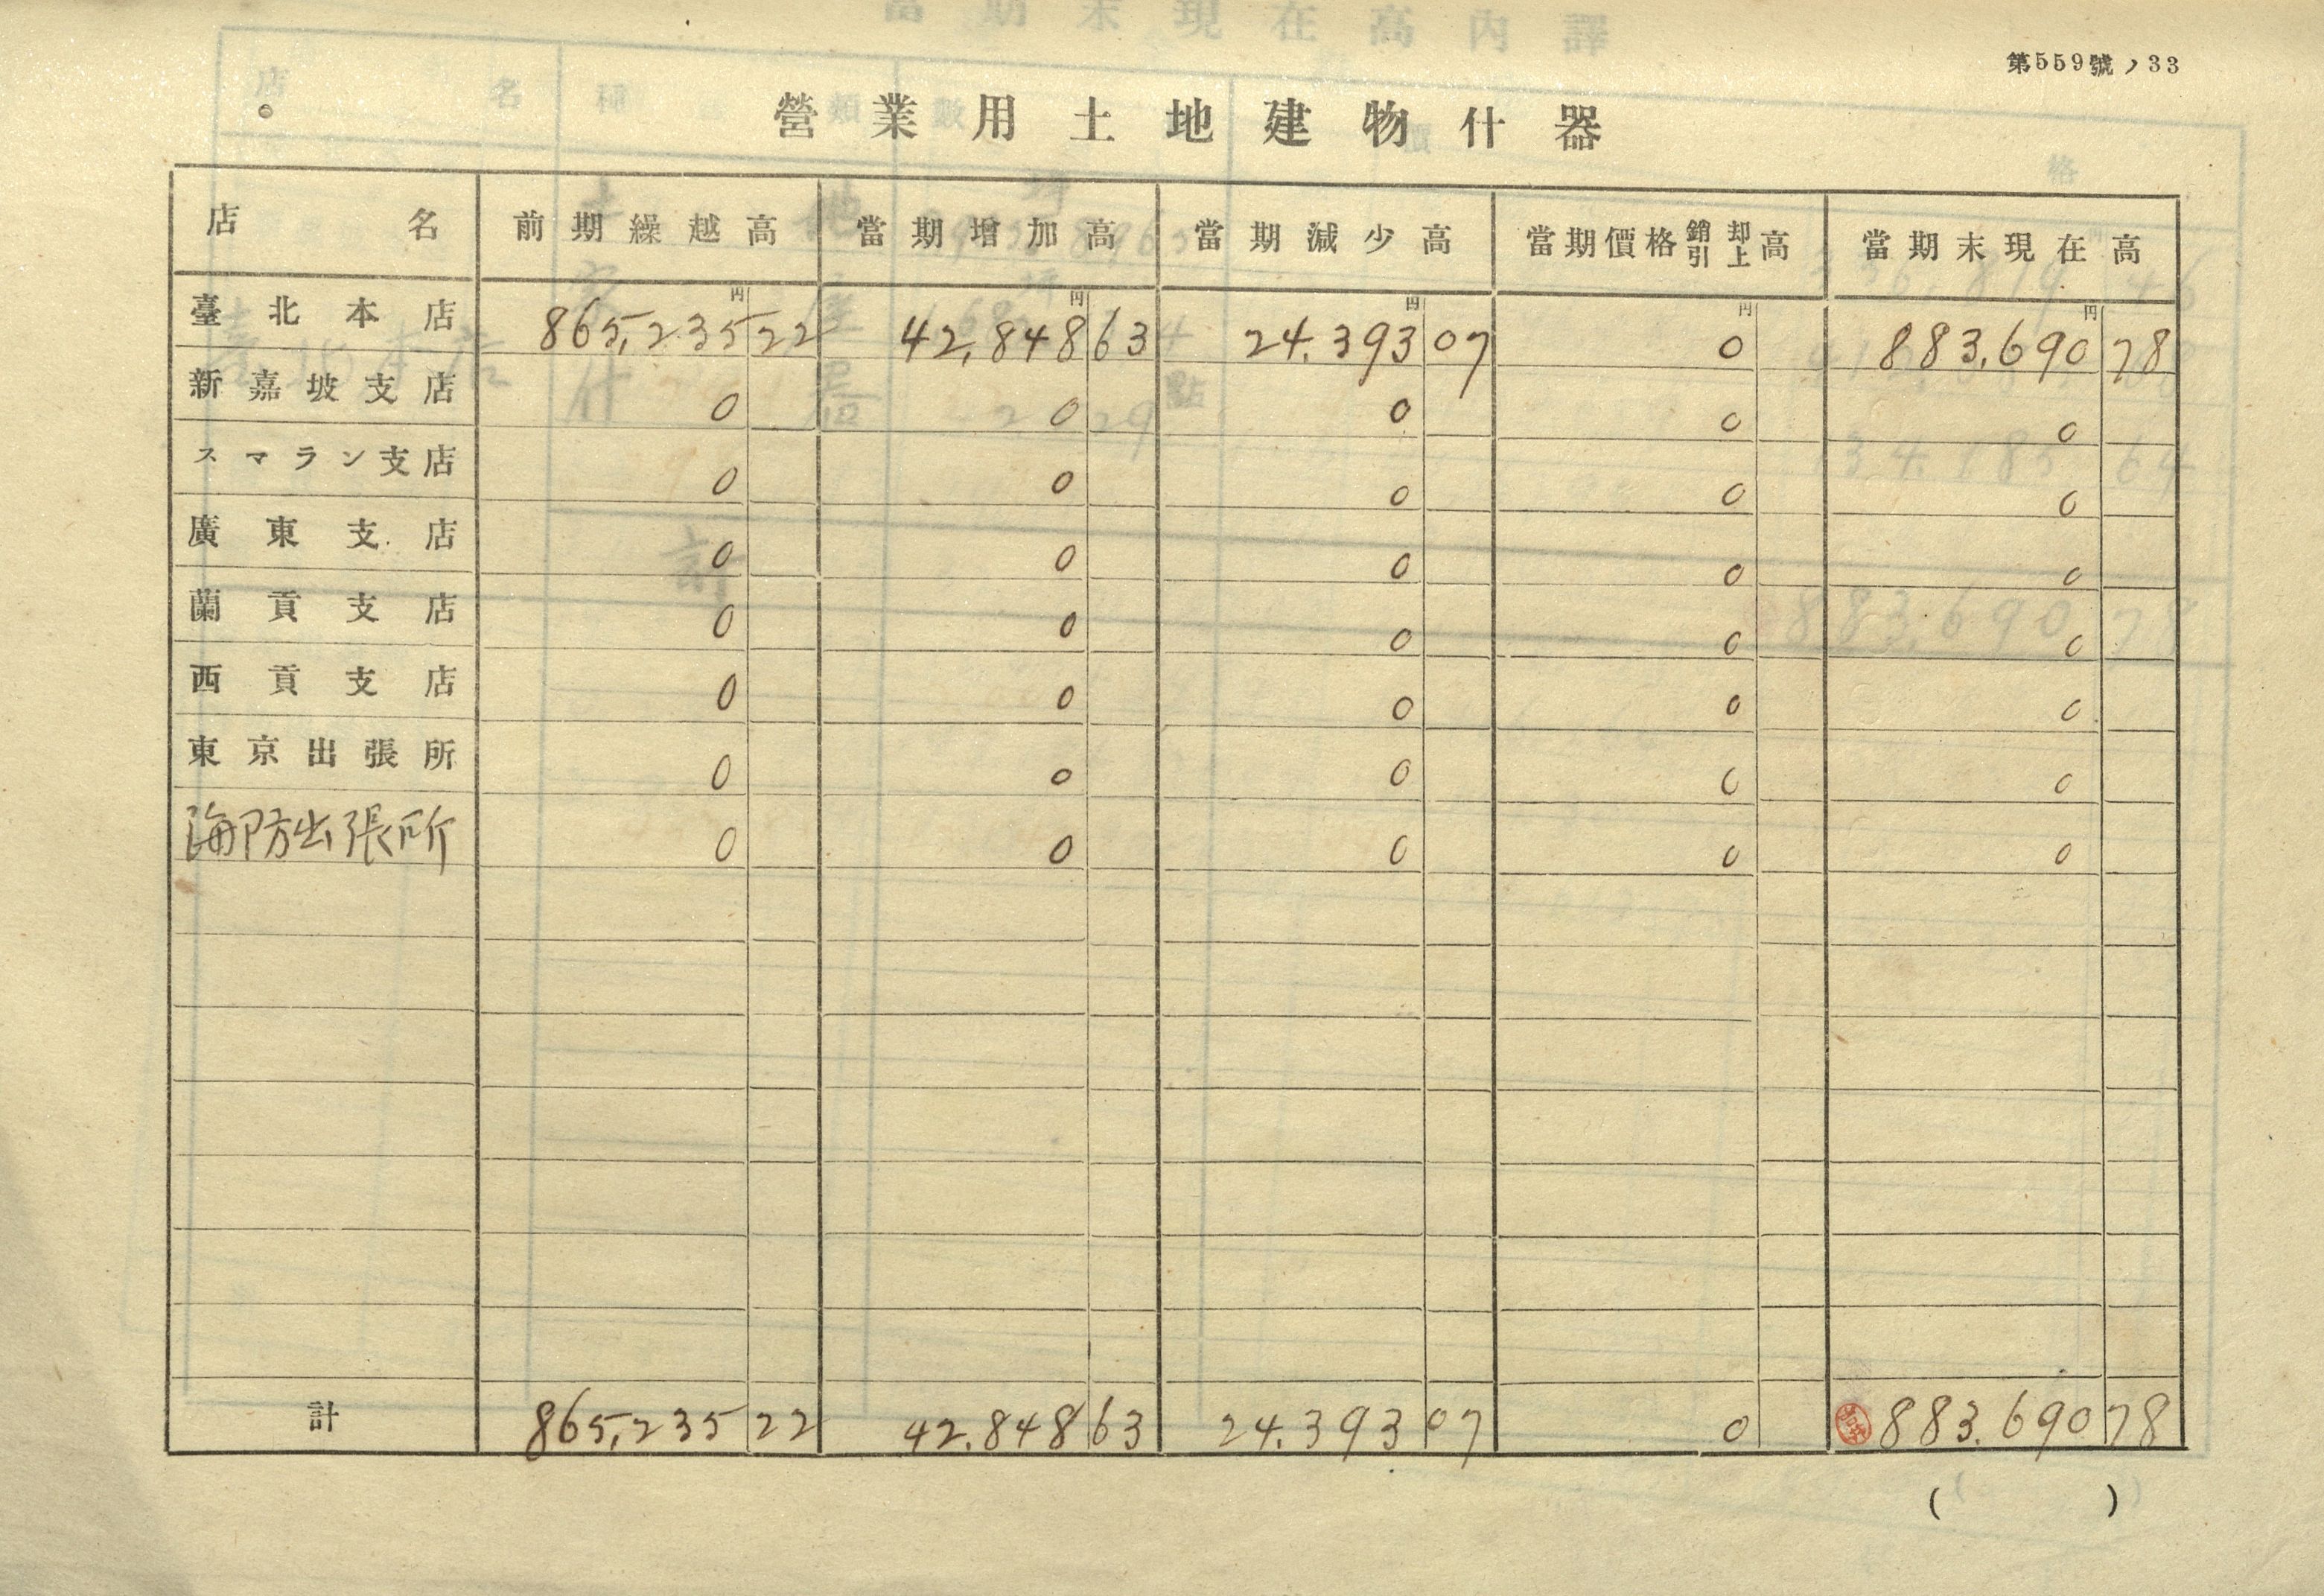 第559號ノ33
營業用土地建物什器
店名 前期繰越高 當期增加高 當期減少高 當期價格銷却引上高 當期末現在高
臺北本店 865,235円22 42,848円63 24,393円07 0円 883,690円78
新嘉坡支店 0 0 0 0 0
スマラン支店 0 0 0 0 0
廣東支店 0 0 0 0 0
蘭貢支店 0 0 0 0 0
西貢支店 0 0 0 0 0
東京出張所 0 0 0 0 0
海防出張所 0 0 0 0 0
計 865,235 22 42,848 63 24,393 07 0 883,690 78
( )